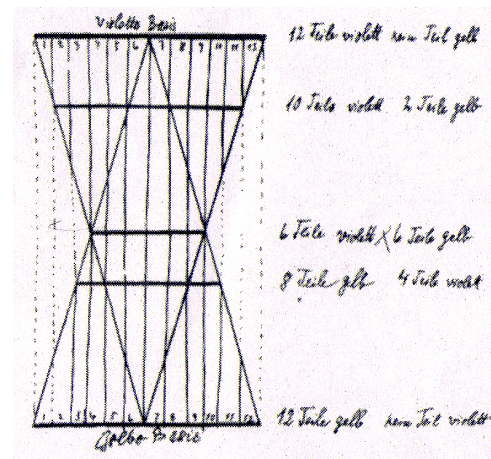 Violette Basis
12 Teile violett kein Teil gelb
1 2 3 4 5 6 7 8 9 10 11 12
10 Teile violett 2 Teile gelb
6 Teile violett × 6 Teile gelb
8 Teile gelb 4 Teile violett
1 2 3 4 5 6 7 8 9 10 11 12
12 Teile gelb kein Teil violett
Gelbe Basis